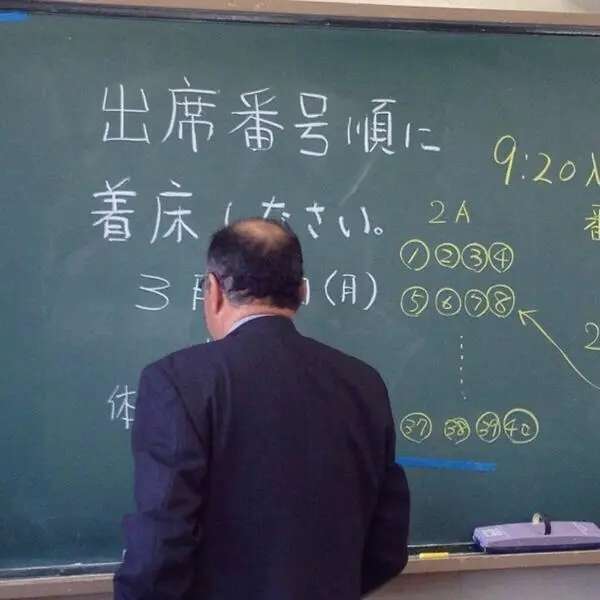 出席番号順に
着床しなさい。
3月 (月)
体
9:20
2A
① ② ③ ④
⑤ ⑥ ⑦ ⑧
㊲ ㊳ ㊴ ㊵
2